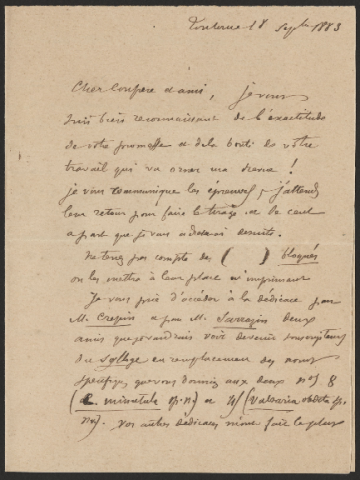 Toulouse 18 Sept 1883
Cher Confrère & ami, je vous
suis bien reconnaissant de l'exactitude
de votre promesse et de la bonté de votre
travail qui va orner ma Revue !
je vous communique les épreuves, j'attends
leur retour pour faire le tirage et le
à part que je vous ensuite.
Ne tenez pas compte des ( ) bloqués
on les mettra à leur place en imprimant
Je vous prie d'accéder à la dédicace pour
M. Crespin et pour M. Sarrazin deux
amis que je voudrais voir devenir souscripteurs
du Sylloge en remplacement des noms
spécifiques que vous donniez aux deux nos 8
( minutula sp. n.) et 41 (Valsaria sp.
n.). vos autres dédicaces m'ont fait le plus